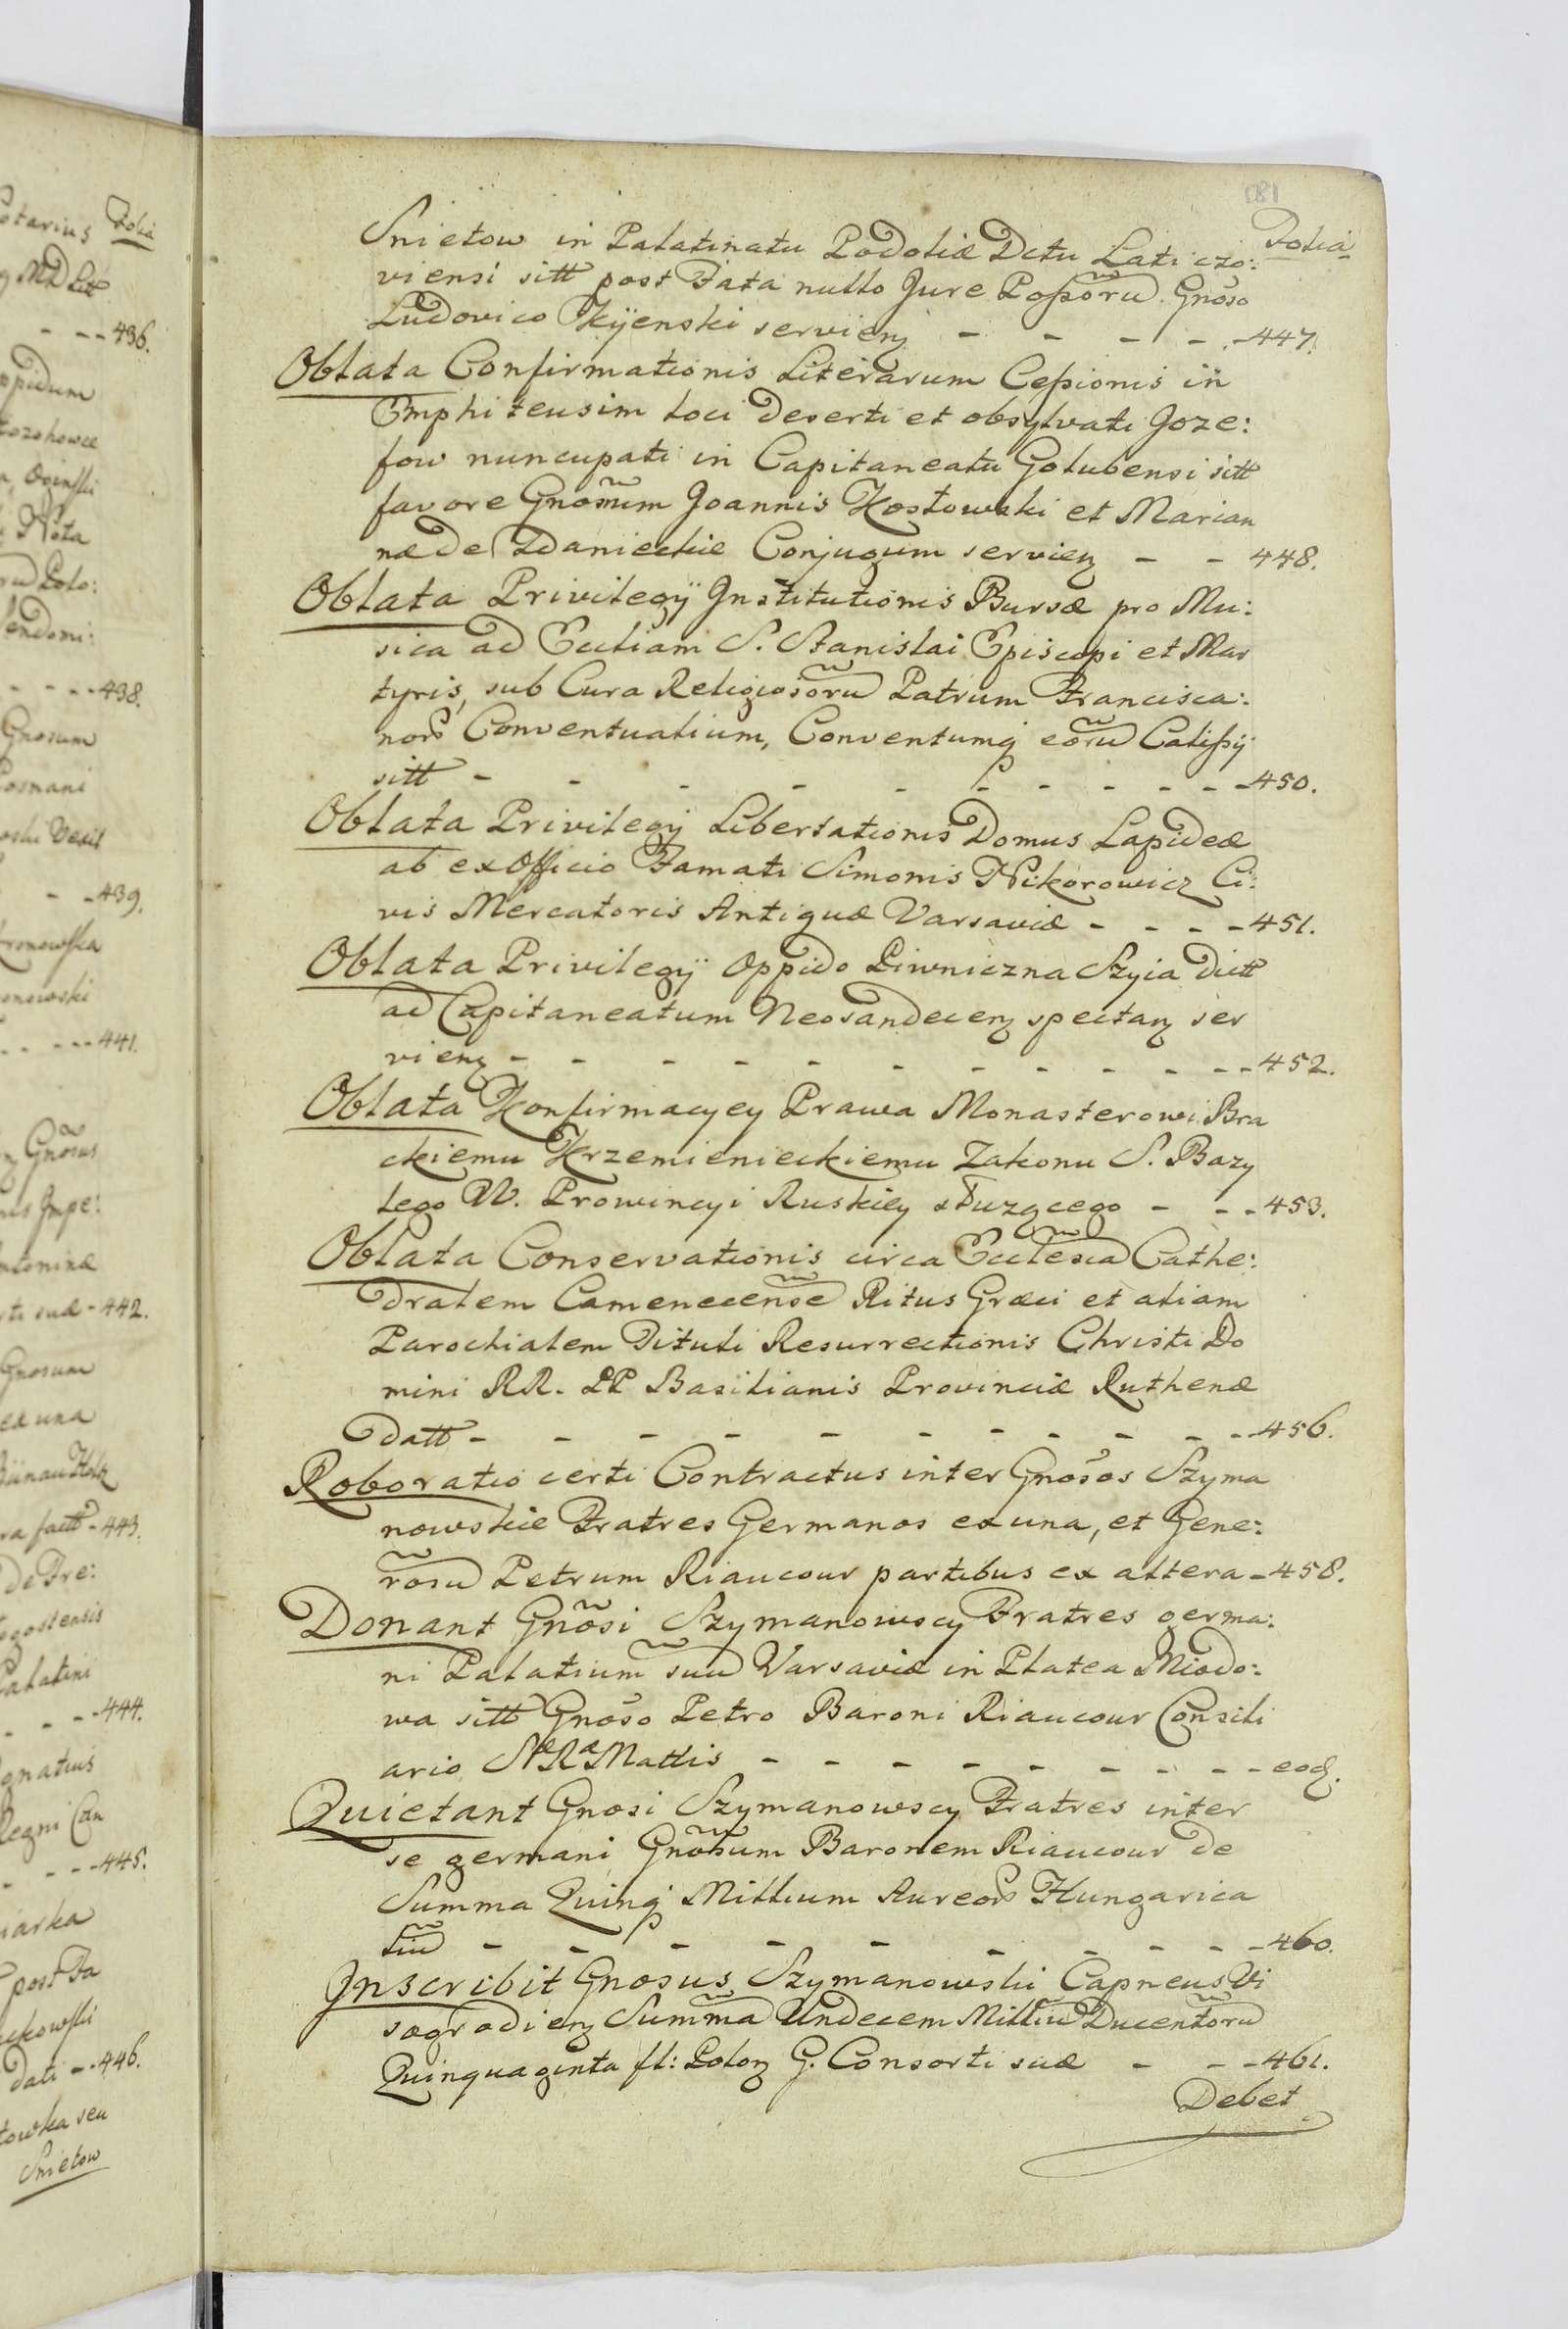 Folia
Snietow in Palatinatu Podoliæ Dctu Laticzo:
viensi sitt post Fata nullo Jure Possõru Gnõso
Ludovico Kÿenski servienꝫ - - - - 447.
Oblata Confirmationis Literarum Cessionis in
Emphiteusim loci deserti et obsylvati Joze:
fow nuncupati in Capitaneatu Golubensi sitt
favore Gnosũm Joannis Kostowski et Marian
næ de Zdanieckie Conjugum servienꝫ - - 448.
Oblata Privilegÿ Institutionis Bursæ pro Mu:
sica ad Eccliam S. Stanislai Episcopi et Mar
tyris, sub Cura Religiosõru Patrum Francisca:
norũ Conventualium, Conventumqꝫ eõru Calissÿ
sitt - - - - - - - - - - 450.
Oblata Privilegÿ Libertationis Domus Lapideæ
ab ex Officio Famati Simonis Nikorowicz Ci:
vis Mercatoris Antiquæ Varsaviæ - - - - 451.
Oblata Privilegÿ Oppido Piwniczna Szyia dictt
ad Capitaneatum Neosandecenꝫ spectanꝫ ser
vienꝫ - - - - - - - - - - 452.
Oblata Konfirmacyey Prawa Monasterowi Bra
ckiemu Krzemienieckiemu Zakonu S. Bazy
lego W. Prowincyi Ruskiey służącego - - - 453.
Oblata Conservationis circa Ecclesia͠ Cathe:
dralem Camenecense͠ Ritus Græci et aliam
Parochialem Tituli Resurrectionis Christi Do
mini RR. PP Basilianis Provinciæ Ruthenæ
datt - - - - - - - - - - 456.
Roboratio certi Contractus inter Gnosõs Szyma
nowskie Fratres Germanos ex una, et Gene:
rosũ Petrum Riaucour partibus ex altera - 458.
Donant Gnõsi Szymanowscy Fratres germa:
ni Palatium suũ Varsaviæ in Platea Miodo:
wa sitt Gnõso Petro Baroni Riaucour Consili
ario Sæ Ræ Mattis - - - - - - - - eodꝫ.
Quietant Gnosi Szymanowscy Fratres inter
se germani Gnõsum Baronem Riaucour de
Summa Quinqꝫ Millium Aureorũ Hungarica
liũ - - - - - - - - - 460.
Inscribit Gnosus Szymanowski Capneus Vi
sogradienꝫ Summa͠ Undecem Milliũ Ducentõru
Quinquaginta fl: Polonꝫ G. Consorti suæ - - - 461.
Debet